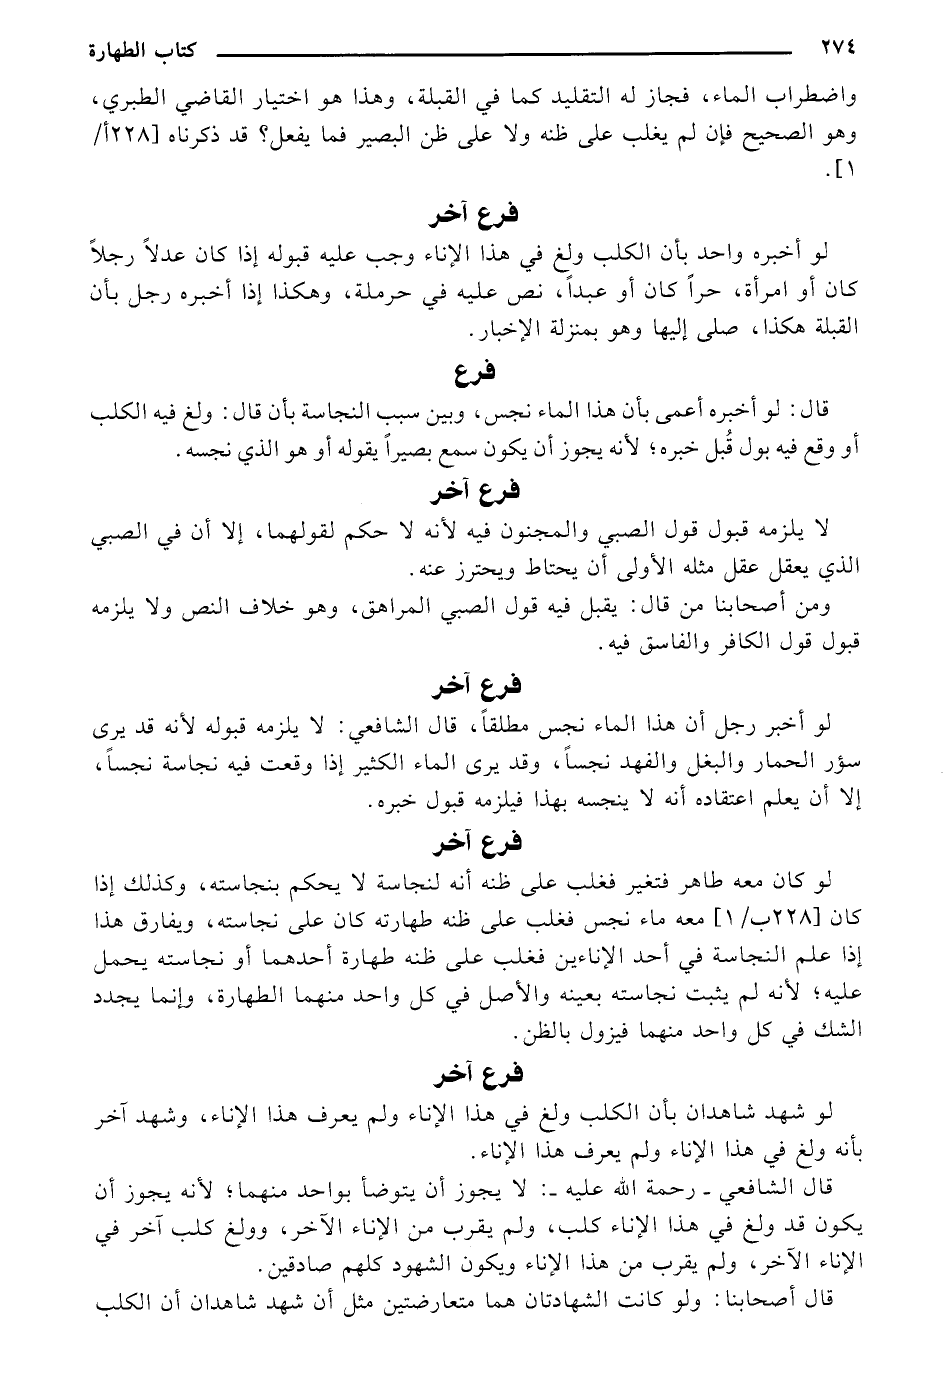 ٢٧٤ كتاب الطهارة
واضطراب الماء، فجاز له التقليد كما في القبلة، وهذا هو اختيار القاضي الطبري،
وهو الصحيح فإن لم يغلب على ظنه ولا على ظن البصير فما يفعل؟ قد ذكرناه [٢٢٨أ/
١].
فرع آخر
لو أخبره واحد بأن الكلب ولغ في هذا الإناء وجب عليه قبوله إذا كان عدلاً رجلاً
كان أو امرأة، حراً كان أو عبداً، نص عليه في حرملة، وهكذا إذا أخبره رجل بأن
القبلة هكذا، صلى إليها وهو بمنزلة الإخبار.
فرع
قال: لو أخبره أعمى بأن هذا الماء نجس، وبين سبب النجاسة بأن قال: ولغ فيه الكلب
أو وقع فيه بول قُبل خبره؛ لأنه يجوز أن يكون سمع بصيراً يقوله أو هو الذي نجسه.
فرع آخر
لا يلزمه قبول قول الصبي والمجنون فيه لأنه لا حكم لقولهما، إلا أن في الصبي
الذي يعقل عقل مثله الأولى أن يحتاط ويحترز عنه.
ومن أصحابنا من قال: يقبل فيه قول الصبي المراهق، وهو خلاف النص ولا يلزمه
قبول قول الكافر والفاسق فيه.
فرع آخر
لو أخبر رجل أن هذا الماء نجس مطلقاً، قال الشافعي: لا يلزمه قبوله لأنه قد يرى
سؤر الحمار والبغل والفهد نجساً، وقد يرى الماء الكثير إذا وقعت فيه نجاسة نجساً،
إلا أن يعلم اعتقاده أنه لا ينجسه بهذا فيلزمه قبول خبره.
فرع آخر
لو كان معه طاهر فتغير فغلب على ظنه أنه لنجاسة لا يحكم بنجاسته، وكذلك إذا
كان [٢٢٨ب/ ١] معه ماء نجس فغلب على ظنه طهارته كان على نجاسته، ويفارق هذا
إذا علم النجاسة في أحد الإناءين فغلب على ظنه طهارة أحدهما أو نجاسته يحمل
عليه؛ لأنه لم يثبت نجاسته بعينه والأصل في كل واحد منهما الطهارة، وإنما يجدد
الشك في كل واحد منهما فيزول بالظن.
فرع آخر
لو شهد شاهدان بأن الكلب ولغ في هذا الإناء ولم يعرف هذا الإناء، وشهد آخر
بأنه ولغ في هذا الإناء ولم يعرف هذا الإناء.
قال الشافعي ـ رحمة الله عليه ـ: لا يجوز أن يتوضأ بواحد منهما؛ لأنه يجوز أن
يكون قد ولغ في هذا الإناء كلب، ولم يقرب من الإناء الآخر، وولغ كلب آخر في
الإناء الآخر، ولم يقرب من هذا الإناء ويكون الشهود كلهم صادقين.
قال أصحابنا: ولو كانت الشهادتان هما متعارضتين مثل أن شهد شاهدان أن الكلب